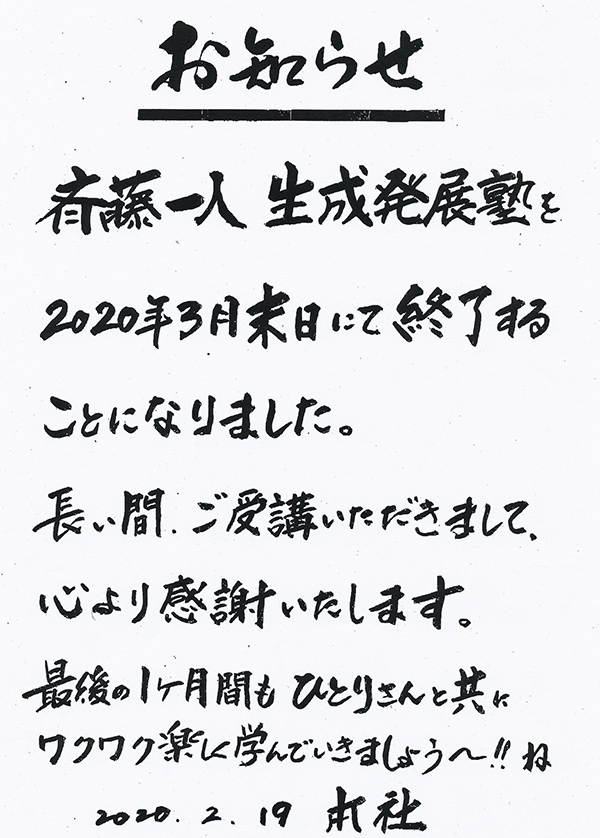 お知らせ
斉藤一人 生成発展塾を
2020年3月末日にて終了する
ことになりました。
長い間、ご受講いただきまして、
心より感謝いたします。
最後の1ヶ月間も ひとりさんと共に
ワクワク楽しく学んでいきましょう〜!! ね
2020.2.19 本社